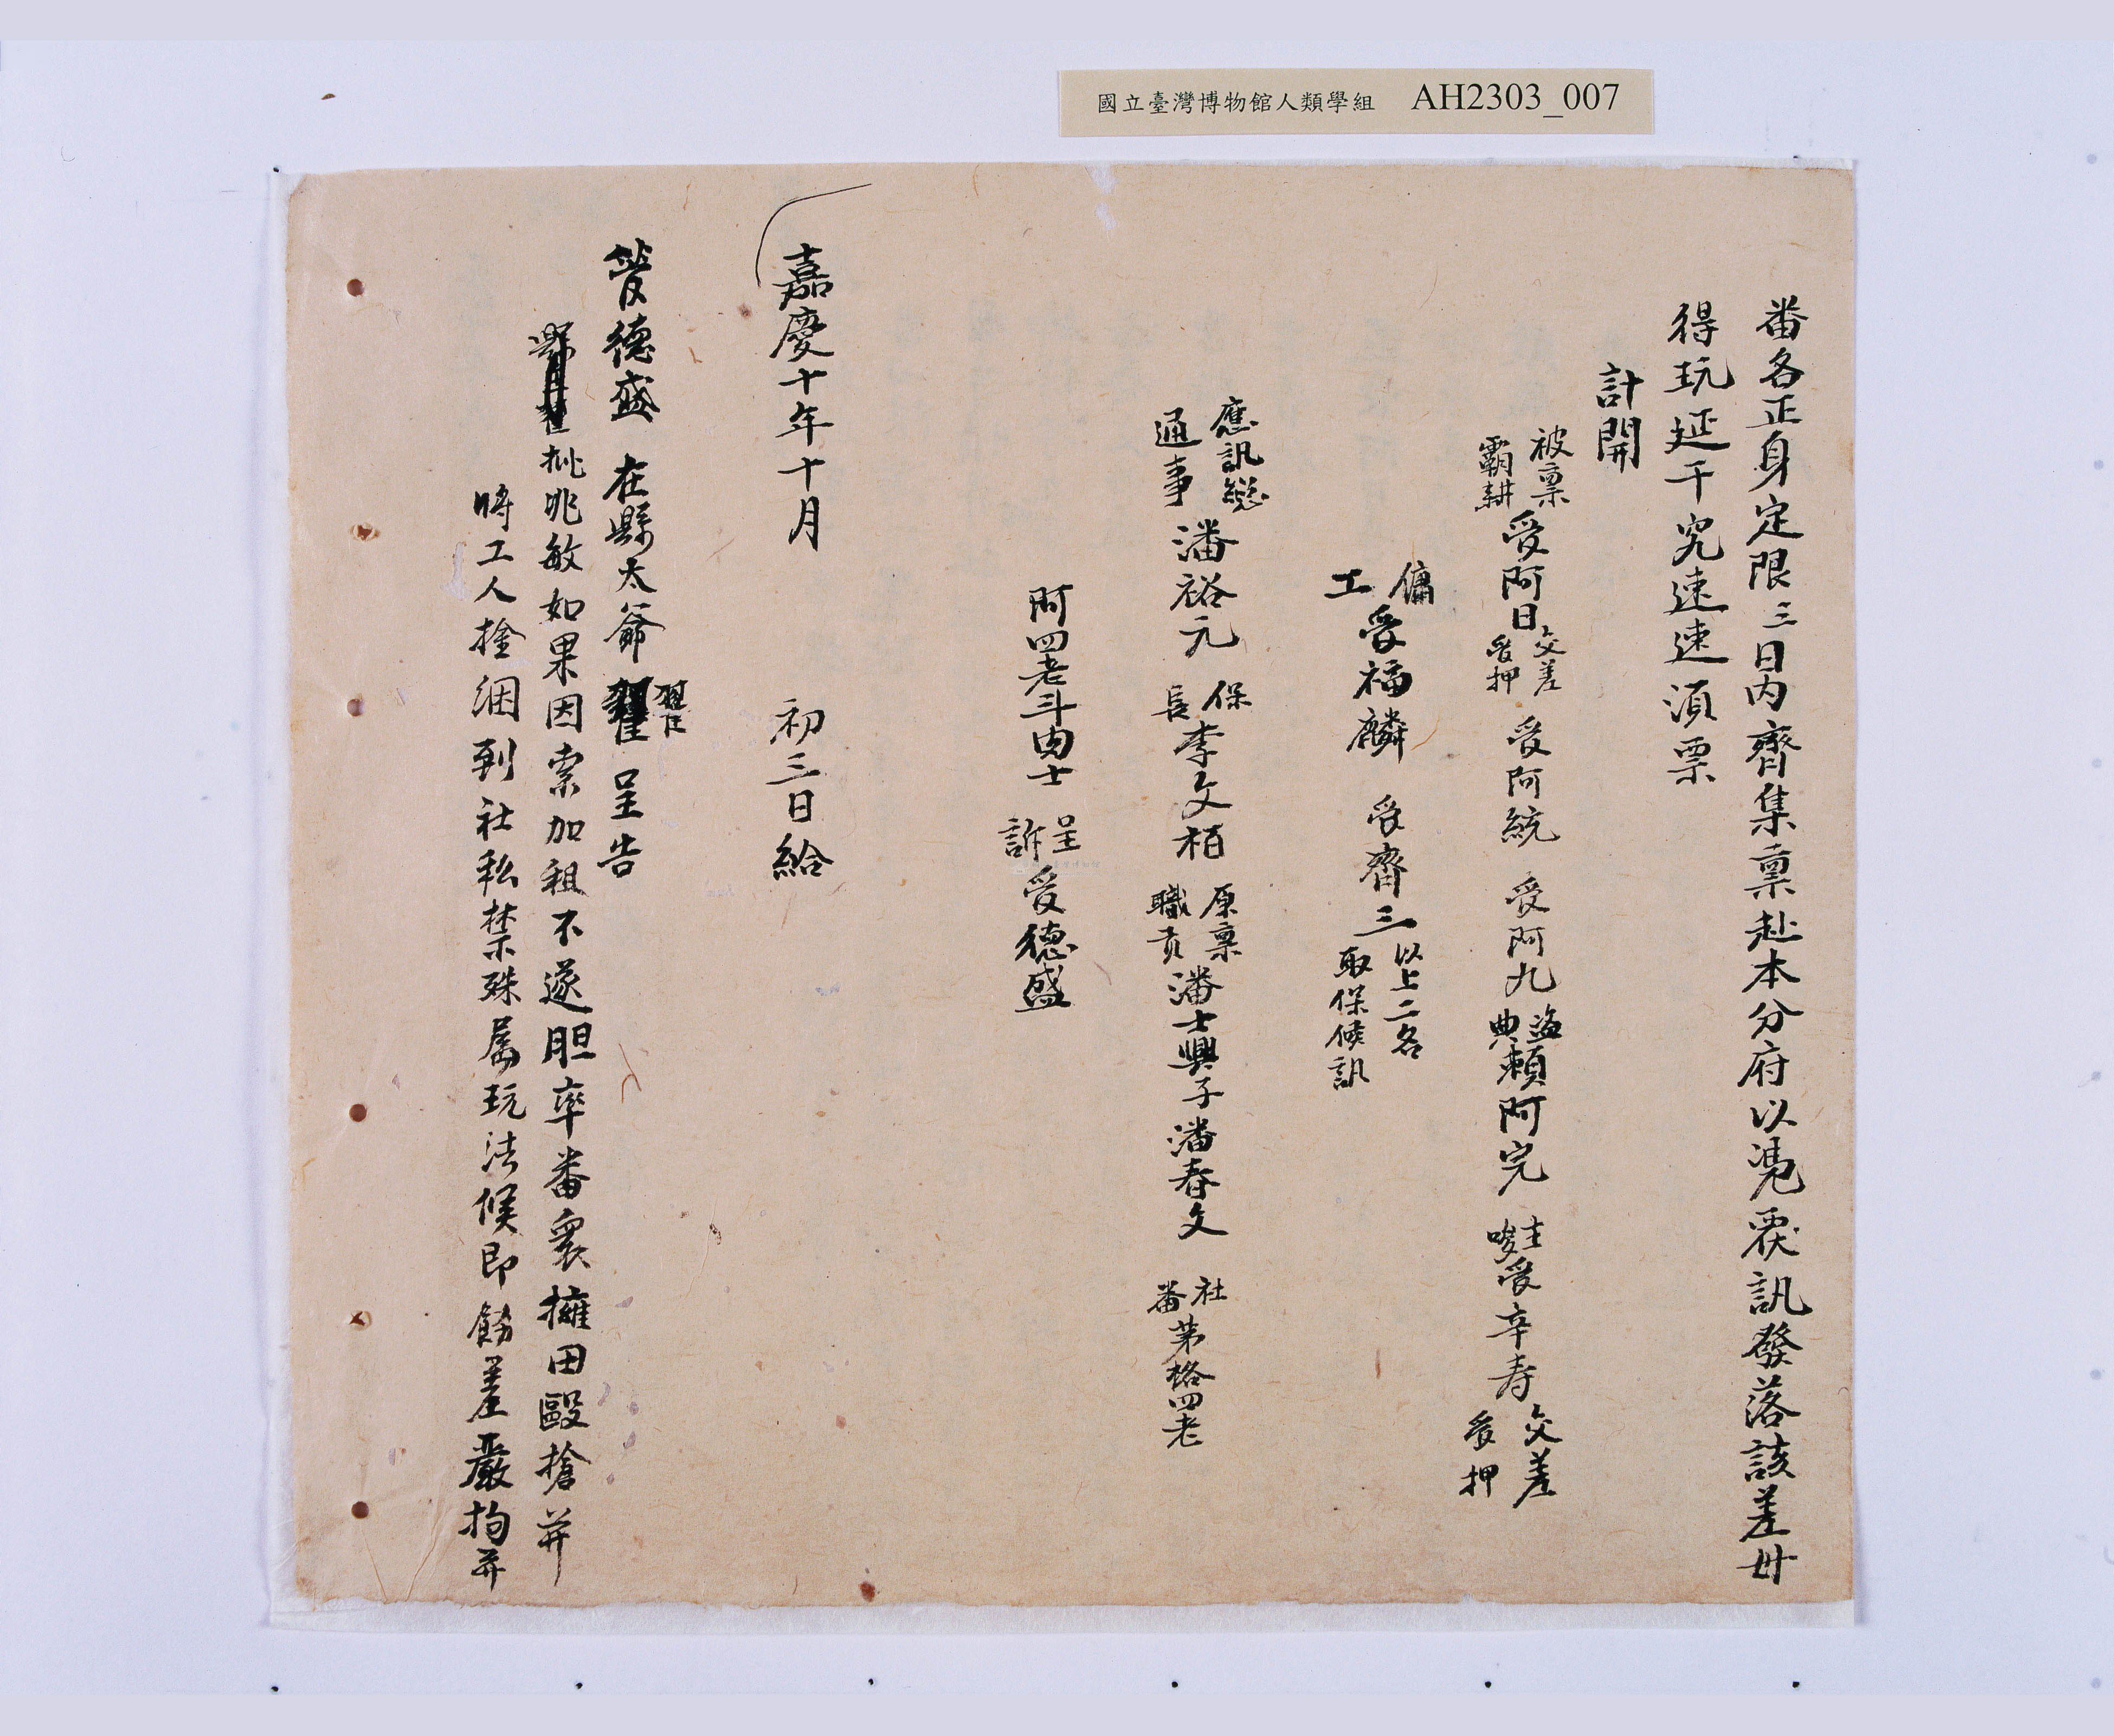 國立臺灣博物館人類學組 AH2303_007
番各正身定限三日內齊集稟赴本分府以凴覆訊發落該差毋
得玩延干究速速須票
計開
被稟霸耕受阿日交差受押 受阿統 受阿九 盜典賴阿完 主唆受辛寿交差受押
傭工受福麟 受齊三以上二名取保候訊
應訊総通事潘裕元 保長李文栢 原稟職貢潘士興子潘春文 社番茅格四老
阿四老斗由士 呈訴受德盛
嘉慶十年十月 初三日給
受德盛 在縣太爺翟呈告
批 如果因索加租不遂胆率番衆擁田毆搶并
時工人捡綑到社私禁殊属玩法候即飭差嚴拘并